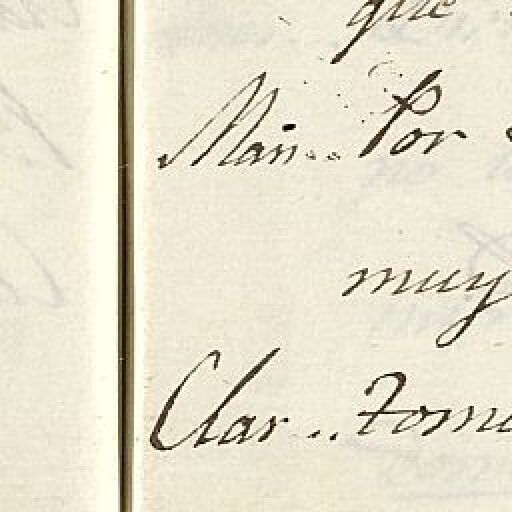 que
Man... Por
muy
Clar.. Tom